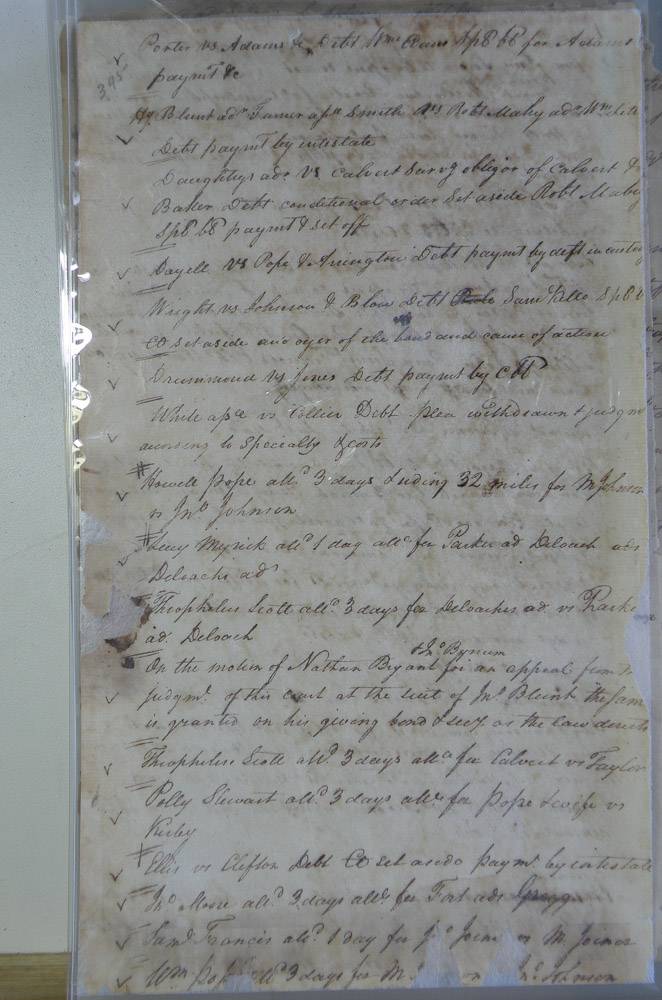 395
Porter vs Adams &c Debt Wm Spl bl for Adams
paymt &c
Hy Blunt adr Turner apee Smith vs Robt Mabry adr Wm
Debt paymt by intestate
Daughtrys adr vs Calvert Survg obligor of Calvert &
Baker Debt conditional order set aside Robt Mabry
Spl bl paymt & set off
Dayell vs Pope & Arrington Debt paymt by deft in custody
Wright vs Johnson & Blow Debt Saml Kello Spl b
CO set aside and oyer of the bond and cause of action
Drummond vs Jones Debt paymt by CO
White apee vs Collier Debt plea withdrawn & judgm
according to Specialty & costs
Howell Pope alld 3 days & riding 32 miles for M Johnson
vs Jno Johnson
Lucy Myrick alld 1 day allce for Parker ad Deloach ads
Deloachs ad
Theophelus Scott alld 3 days for Deloaches ad vs Parke
ad. Deloach
& Jno Bynum
On the motion of Nathan Bryant for an appeal from
judgmt. of this court at the suit of Jno Blunt the same
is granted on his giving bond & secy as the law directs
Theophelus Scott alld 3 days allce for Calvert vs Taylor
Polly Stewart alld 3 days allce for Pope & wife vs
Kirby
Ellis vs Clifton Debt CO set aside paymt by intestate
Jno Moore alld 3 days allce for Fort ads Gregg
Saml Francis alld 1 day for Jno Joiner vs M. Joiner
Wm Pope alld 3 days for M Jno Johnson